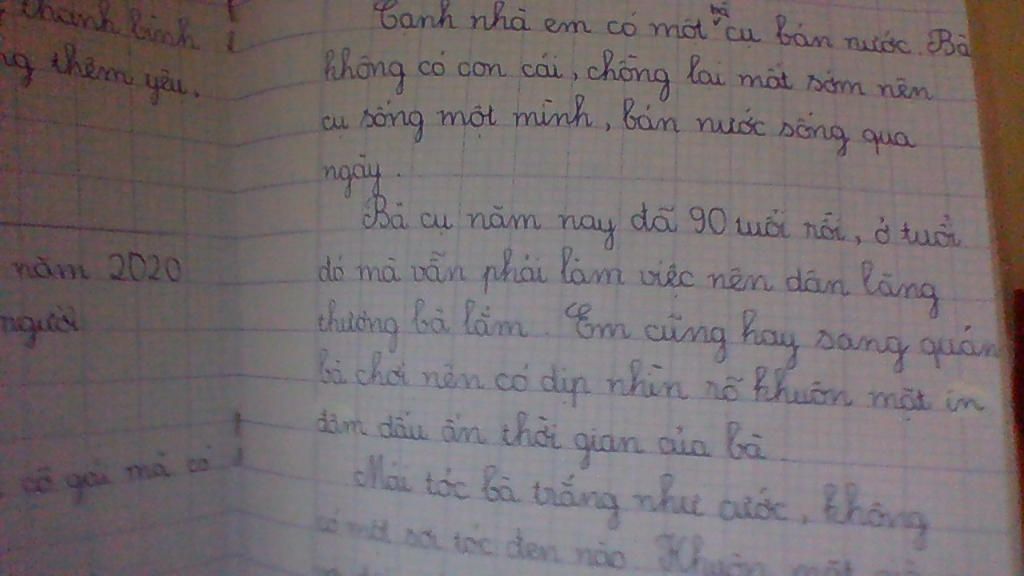 thanh bình
thêm yêu.
năm 2020
người
cô gái mà có
Cạnh nhà em có một bà cụ bán nước. Bà
không có con cái, chồng lại mất sớm nên
cụ sống một mình, bán nước sống qua
ngày.
Bà cụ năm nay đã 90 tuổi rồi, ở tuổi
đó mà vẫn phải làm việc nên dân làng
thương bà lắm. Em cũng hay sang quán
bà chơi nên có dịp nhìn rõ khuôn mặt in
đậm dấu ấn thời gian của bà
Mái tóc bà trắng như cước, không
có một sợi tóc đen nào. Khuôn mặt